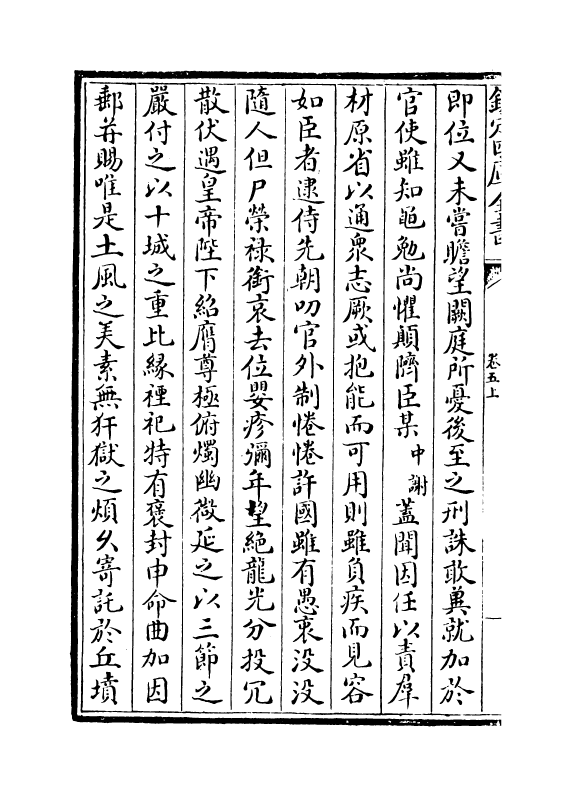 欽定四庫全書
卷五上
即位又未嘗瞻望闕庭所憂後至之刑誅敢冀就加於
官使雖知黽勉尚懼顛隮臣某中謝蓋聞因任以責羣
材原省以通衆志厥或抱能而可用則雖負疾而見容
如臣者逮侍先朝叨官外制惓惓許國雖有愚衷没没
隨人但尸榮禄銜哀去位嬰疹彌年望絶龍光分投冗
散伏遇皇帝陛下紹膺尊極俯燭幽微延之以三節之
嚴付之以十城之重比縁禋祀特有褒封申命曲加因
郵并賜唯是土風之美素無犴獄之煩久寄託於丘墳